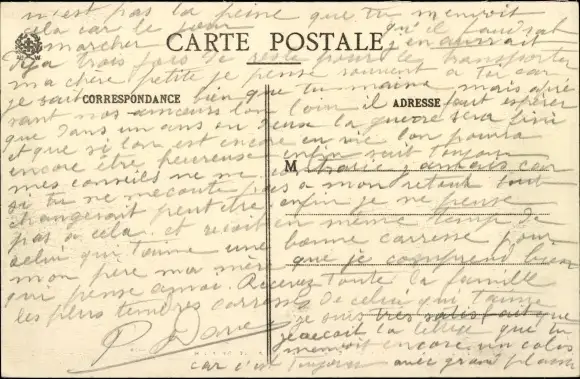 n'est pas la peine que tu m'envoit
cela car le jour qu'il faudrat
marcher j'en aurrait
CARTE POSTALE
déja trois fois de reste pour les transporter
ma chère petite je pense souvent a toi car
je sait bien que tu m'aime mais
CORRESPONDANCE
ADRESSE
nos amours loin il faut espérer
que dans un ans ou deux la guerre sera fini
et que si l'on est encore en vie l'on pourra
encore être heureuse enfin suit toujour
mes conseils ne me car
M
si tu ne m'écoute pas a mon retour tout
changerait peut être enfin je ne pense
pas a cela et reçoit en même temp de
celui qui t'aime une bonne caresse pour
mon père ma mère que je comprend bien
qui pense a moi. Recevez toute la famille
les plus tendres caresses de celui qui t'aime
je suis très satisfait que
j'ai reçoit la lettre que tu
m'envoit encore un colis
car c'est toujours avec grand plaisir